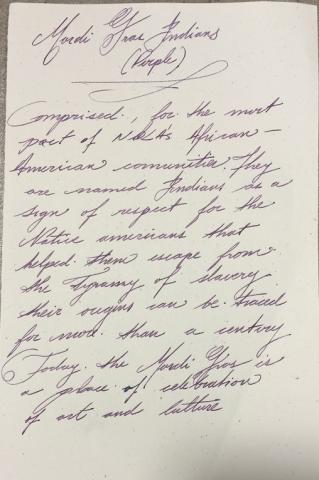 Mardi Gras Indians
(Purple)
Comprised, for the most
part of NOLA's African-
American comunities. They
are named Indians as a
sign of respect for the
Native americans that
helped them escape from
the Tyranny of slavery
their origins can be traced
for more than a century
Today the Mardi Gras is
a place of celebration
of art and culture